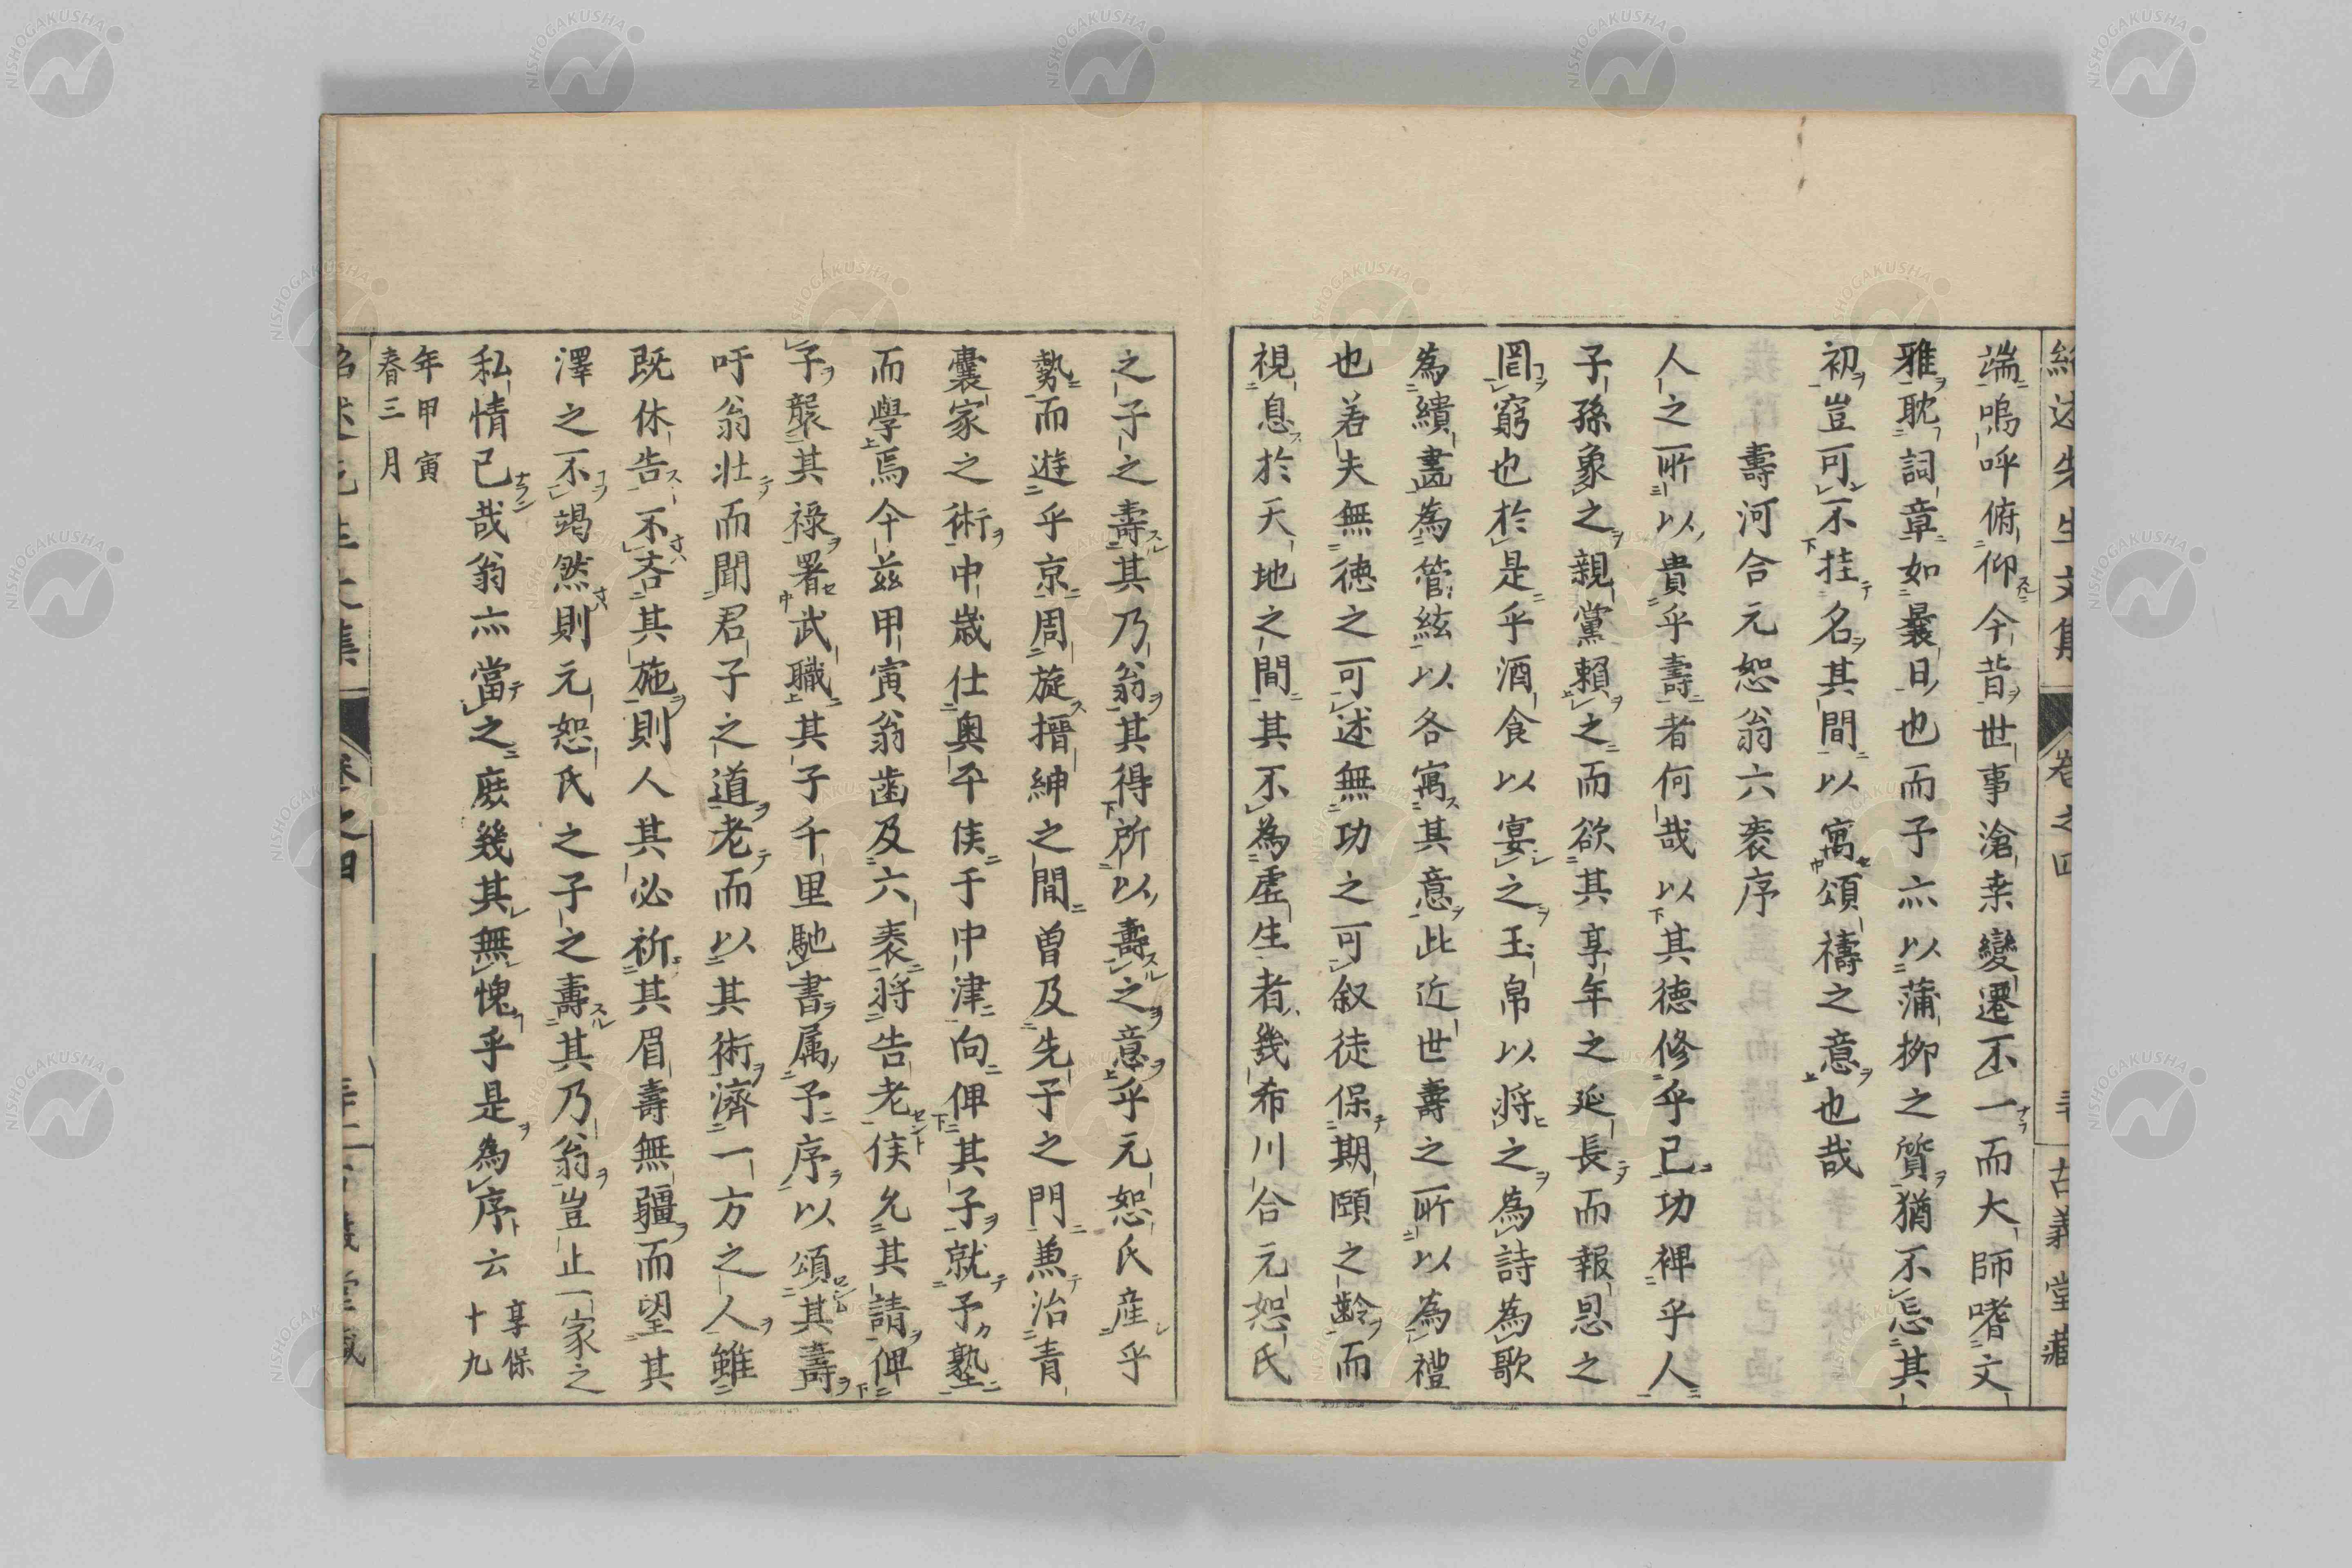 紹述先生文集 卷之四 古義堂藏
端嗚呼俯仰今昔世事滄桒變遷不一而大師嗜文
雅耽詞章如曩日也而予亦以蒲柳之質猶不忘其
初豈可不挂名其間以寓頌禱之意也哉
壽河合元恕翁六袠序
人之所以貴乎壽者何哉以其德修乎己功裨乎人
子孫象之親黨賴之而欲其享年之延長而報恩之
罔窮也於是乎酒食以宴之玉帛以將之為詩為歌
為繢畵為管絃以各寓其意此近世壽之所以為禮
也若夫無德之可述無功之可叙徒保期頤之齡而
視息於天地之間其不為虛生者幾希川合元恕氏
之子之壽其乃翁其得所以壽之意乎元恕氏産乎
勢而遊乎京周旋搢紳之間曾及先子之門兼治青
囊家之術中歳仕奥平侯于中津向俾其子就予塾
而學焉今茲甲寅翁齒及六袠將告老侯允其請俾
子襲其祿署武職其子千里馳書属予序以頌其壽
吁翁壯而聞君子之道老而以其術濟一方之人雖
既休告不吝其施則人其必祈其眉壽無疆而望其
澤之不竭然則元恕氏之子之壽其乃翁豈止一家之
私情已哉翁亦當之庶幾其無愧乎是為序云 享保十九
年甲寅
春三月
紹述先生文集 卷之四